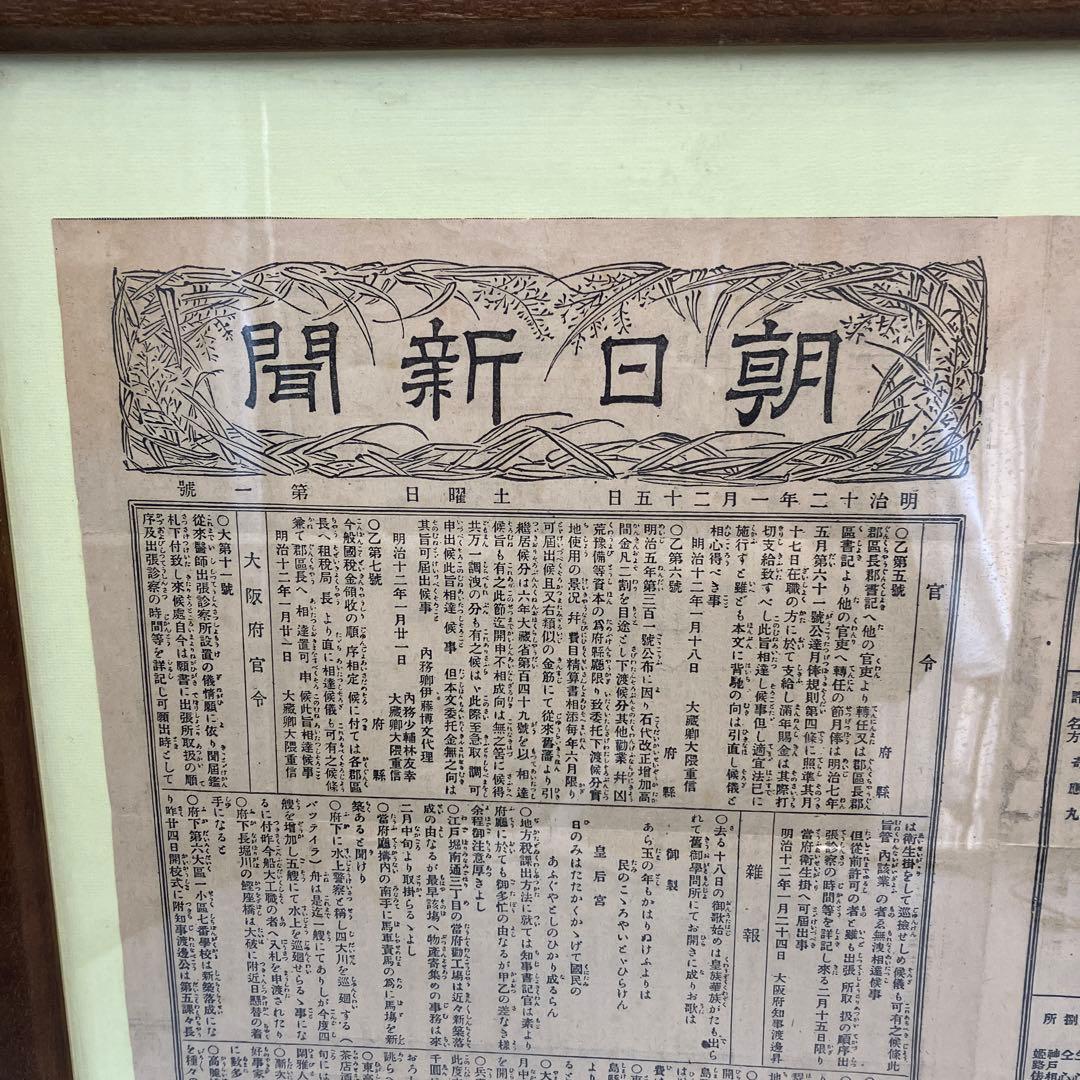 朝日新聞
明治十二年一月二十五日 土曜日 第一號
官令
〇乙第五號 府縣
郡區長郡書記へ他の官吏より轉任又は郡區長郡
區書記より他の官吏へ轉任の節月俸は明治七年
五月第六十一號公達月俸規則第四條に照準其月
十七日在職の方に於て支給し滿年賜金は其際打
切支給致すべし此旨相達し候事但し適宜法已に
施行すと雖ども本文に背馳の向は引直し候儀と
相心得べき事
明治十二年一月十八日 大藏卿大隈重信
〇乙第六號 府縣
明治五年第三百一號公布に因り石代改正增加高
間金凡二割を目途とし下渡候分其他勸業幷凶
荒豫備等資本の爲府縣廳限り致委托下渡候分實
地使用の景况幷費目精算書相添每年六月限り
可屆出候且又右類似の金筋にて從來舊藩より引
繼居候分は六年大藏省第百四十九號を以相達
候旨も有之此節迄開申不相成向は無之筈に候得
共万一調洩の分も有之候はゞ此際至急取調可
申出候此旨相達候事 但本文委托金無之向は
其旨可屆出候事
明治十二年一月廿一日 內務卿伊藤博文代理
內務少輔林友幸
大藏卿大隈重信
〇乙第七號 府縣
今般國稅金領收の順序相定候に付ては各郡區
長へ租稅局長より直に相達候儀も可有之候條
兼て郡區長へ相達置可申候此旨相達候事
明治十二年一月廿一日 大藏卿大隈重信
大阪府官令
〇大第十一號
從來醫師出張診察所設置の儀情願に依り聞屆鑑
札下付致し來候處自今は願書に出張所取扱の順
序及出張診察の時間等を詳記し可願出時として
は衛生掛をして巡撿せしめ候儀も可有之候條此
旨管內該業の者ゑ無洩相達候事
但從前許可の者と雖も出張所取扱の順序出
張診察の時間等を詳記し來る二月十五日限り
當府衛生掛へ可屆出事
明治十二年一月二十四日 大阪府知事渡邊昇
雜報
〇去る十八日の御歌始めは皇族華族がたも出ら
れて舊御學問所にてお開きに成りお歌は
御製
あら玉の年もかはりぬけふよりは
民のこゝろやいとゞひらけん
皇后宮
日のみはたたかくかゝげて國民の
あふぐやとしのひかり成るらん
〇地方稅課出方法に就ては知事書記官は素より
府廳にても御多忙の由なるが甲乙の差なき樣
余程御注意厚きよし
〇江戸堀南通三丁目の當府勸工場は近々新築落
成の由なるが最早該塲へ物產寄集めの事務は來
二月中旬より取掛らるゝよし
〇當府廳搆內の南手に馬車賣馬の爲に馬塲を新
築あると聞けり
〇府下に水上警察と稱し四大川を巡廻する(
バツテイラ)舟は是迄一艘にてありしが今度四
艘を增加し五艘にて水上を巡廻せらるゝ事にな
るに付昨今船大工職の者へ入札を申渡されたり
〇府下長堀川の鰹座橋は大破に附近日懸替の着
手になると
〇府下第六大區一小區七番學校は新築落成にな
り昨廿四日開校式に附知事渡邊公は第五課々長